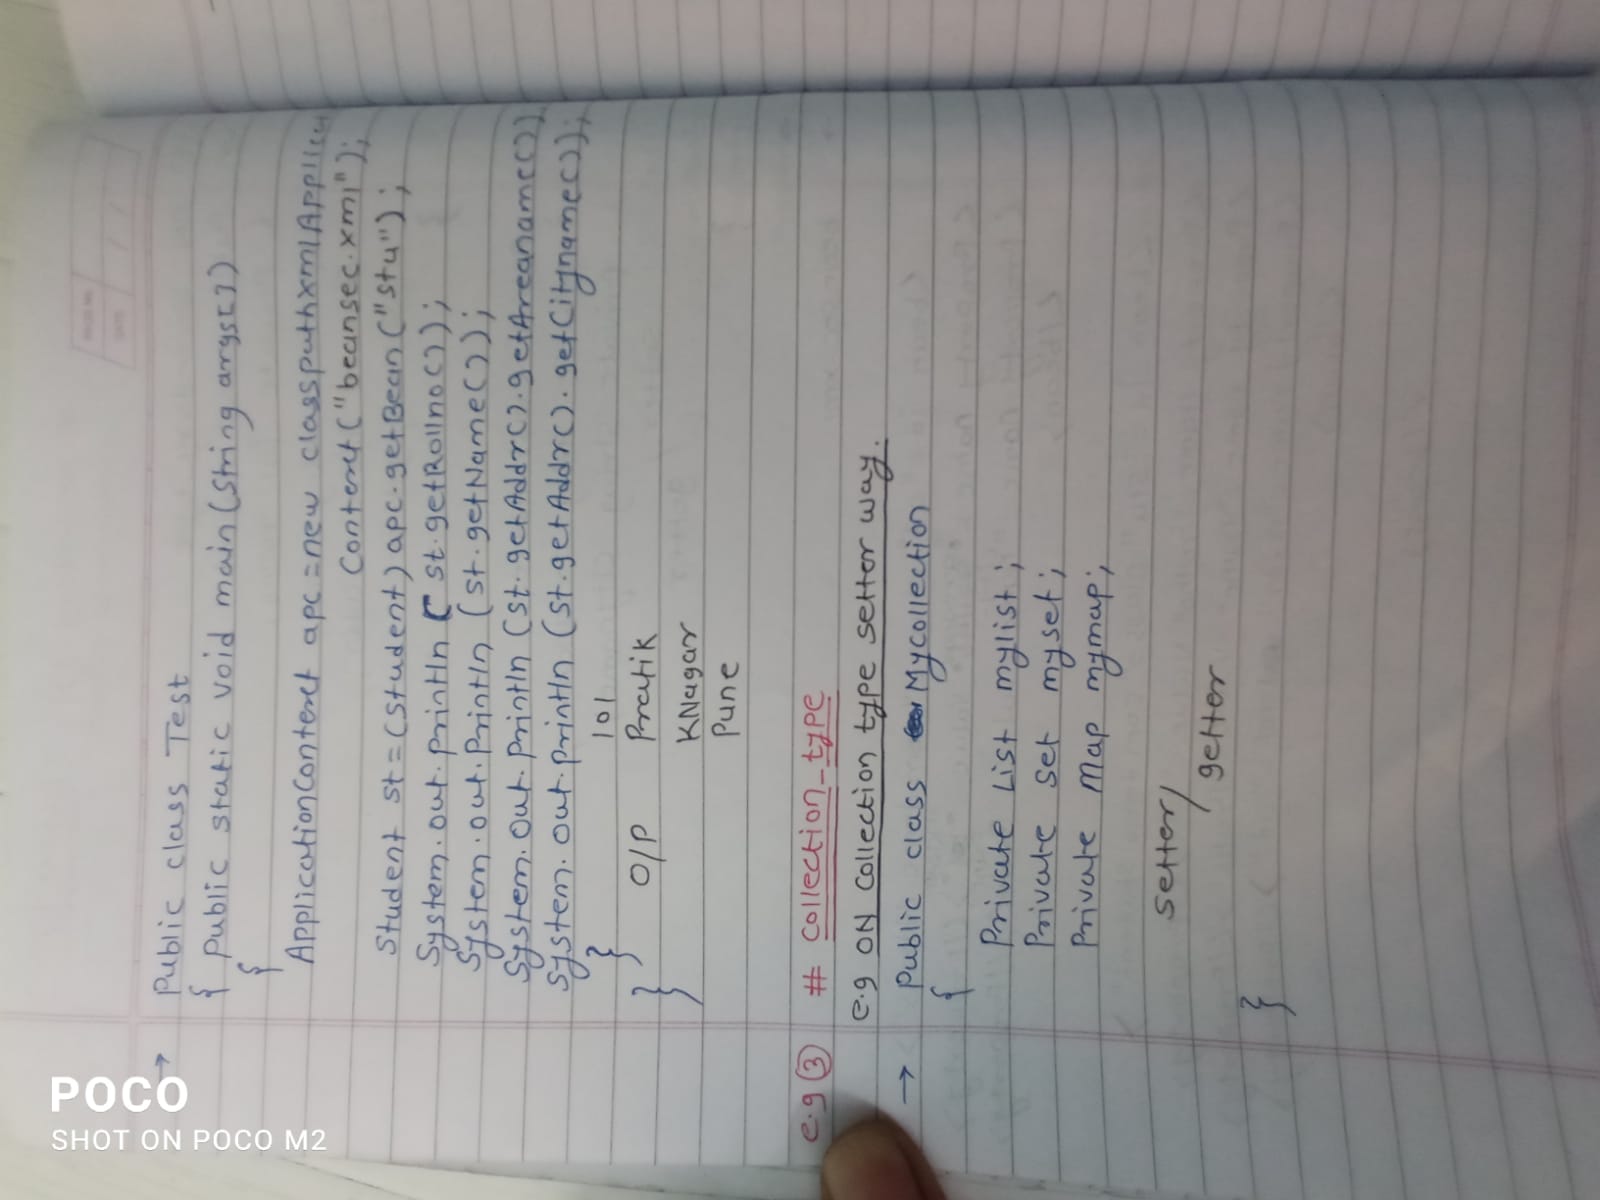 → Public class Test
{ public static void main(String args[])
{
ApplicationContext apc=new classpathxmlApplica
Context("beansec.xml");
Student st=(student)apc.getBean("stu");
System.out.println(st.getRollno());
System.out.println(st.getName());
System.out.println(st.getAddr().getAreaname());
System.out.println(st.getAddr().getCityname());
} 101
} O/P Pratik
KNagar
Pune
e.g ③ # Collection_type
e.g ON collection type setter way.
→ Public class Mycollection
{
Private List mylist;
Private set myset;
Private Map mymap;
setter/
getter
}
POCO
SHOT ON POCO M2